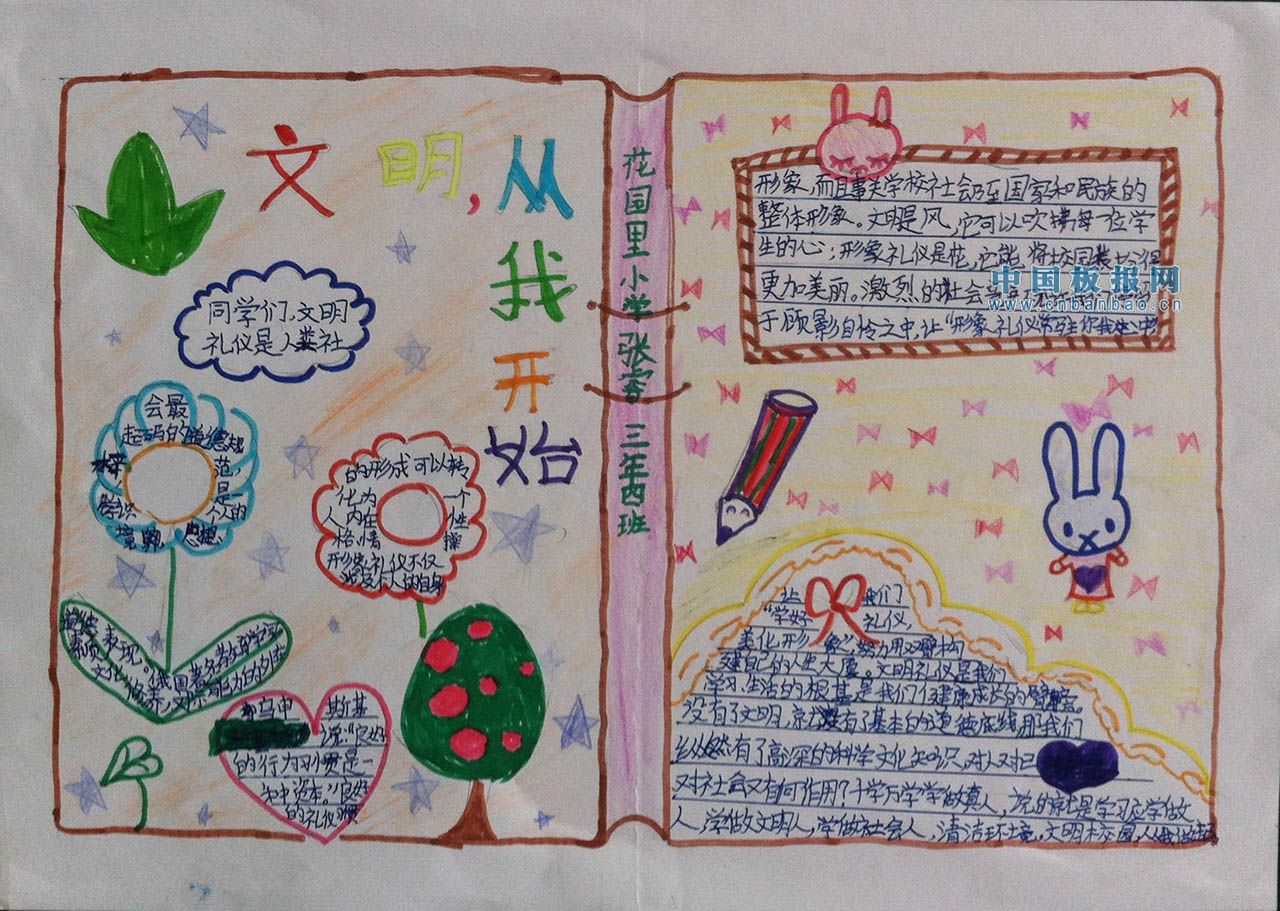 文明,从
我
开
始
同学们.文明
礼仪是人类社
会最
起码的道德规
范
是一
个人的
思想
的形成可以转
化为 一个
人内在 性
格.情 操
形象.礼仪不仅
涉及个人的自身
表现。俄国著名教育学家
乌申 斯基
说:“良好
的行为习惯是一
种资本。”良好
的礼仪习惯
花园里小学 张 三年四班
形象,而且事关学校社会乃至国家和民族的
整体形象。文明是风,它可以吹拂每一位学
生的心;形象礼仪是花,它能将校园装扮得
更加美丽。激烈的社会
于顾影自怜之中,让“形象礼仪”常驻你我心中!
中国板报网
www.cnbanbao.cn
让 我们
“学好 礼仪,
美化形象”,努力用双臂构
建自己的人生大厦。文明礼仪是我们
学习、生活的根基,是我们健康成长的臂膀
没有了文明,就没有了基本的道德底线,那我们
纵然有了高深的科学文化知识,对人对己
对社会又有何作用?千学万学学做真人,说的就是学习应学做
人,学做文明人,学做社会人,清洁环境,文明校园,从我做起